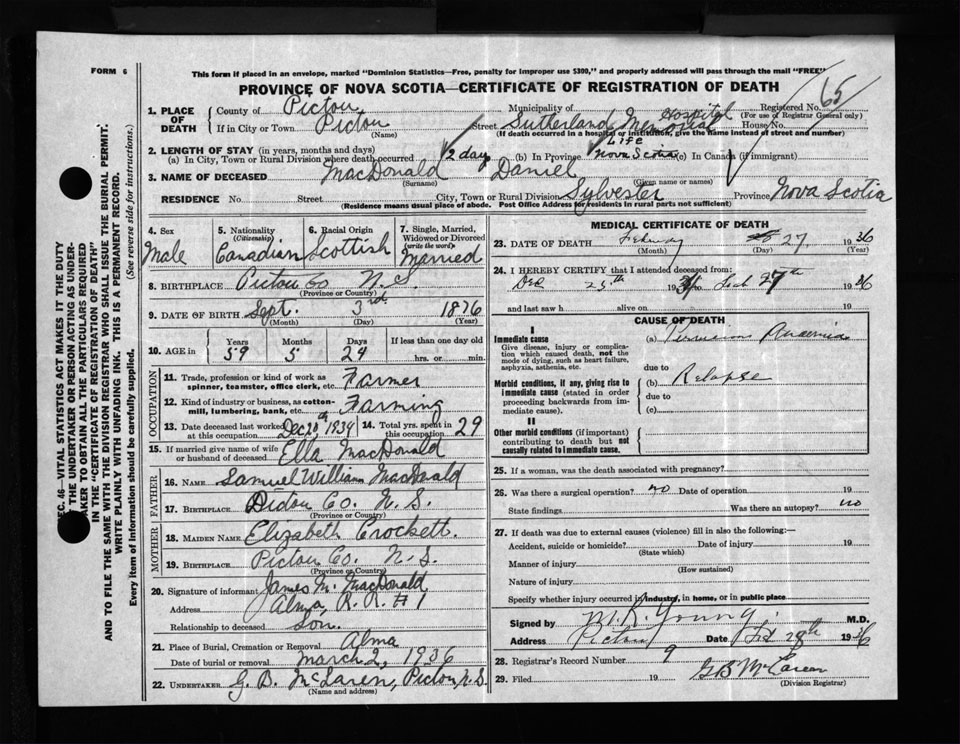 FORM 6
This form if placed in an envelope, marked "Dominion Statistics—Free, penalty for improper use $300," and properly addressed will pass through the mail "FREE"
PROVINCE OF NOVA SCOTIA—CERTIFICATE OF REGISTRATION OF DEATH
65
1. PLACE OF DEATH County of Pictou Municipality of Registered No.
(For use of Registrar General only)
If in City or Town Pictou Street Sutherland Memorial Hospital House No.
(Name) (If death occurred in a hospital or institution, give the name instead of street and number)
2. LENGTH OF STAY (in years, months and days)
(a) In City, Town or Rural Division where death occurred 2 days (b) In Province Life Nova Scotia (c) In Canada (if immigrant)
3. NAME OF DECEASED MacDonald Daniel
(Surname) (Given name or names)
RESIDENCE No. Street City, Town or Rural Division Sylvester Province Nova Scotia
(Residence means usual place of abode. Post Office Address for residents in rural parts not sufficient)
4. Sex Male
5. Nationality (Citizenship) Canadian
6. Racial Origin Scottish
7. Single, Married, Widowed or Divorced (write the word) Married
8. BIRTHPLACE Pictou Co N.S.
(Province or Country)
9. DATE OF BIRTH Sept. 3rd 1876
(Month) (Day) (Year)
10. AGE in Years 59 Months 5 Days 24 If less than one day old hrs. or min.
OCCUPATION
11. Trade, profession or kind of work as spinner, teamster, office clerk, etc. Farmer
12. Kind of industry or business, as cotton-mill, lumbering, bank, etc. Farming
13. Date deceased last worked at this occupation 1934 14. Total yrs. spent in this occupation 29
15. If married give name of wife or husband of deceased Ella MacDonald
FATHER
16. NAME Samuel William MacDonald
17. BIRTHPLACE Co. N.S.
(Province or Country)
MOTHER
18. MAIDEN NAME Elizabeth Crockett
19. BIRTHPLACE Pictou Co. N.S.
(Province or Country)
20. Signature of informant James M. MacDonald
Address Alma, R.R. #1
Relationship to deceased Son.
21. Place of Burial, Cremation or Removal Alma
Date of burial or removal March 2, 1936
22. UNDERTAKER G. B. McLaren, Pictou, N.S.
(Name and address)
MEDICAL CERTIFICATE OF DEATH
23. DATE OF DEATH 27 1936
(Month) (Day) (Year)
24. I HEREBY CERTIFY that I attended deceased from:
Dec 25th 19 to Feb 27th 1936
and last saw h alive on 19
CAUSE OF DEATH
I
Immediate cause
Give disease, injury or complication which caused death, not the mode of dying, such as heart failure, asphyxia, asthenia, etc.
(a) Anaemia
due to
Morbid conditions, if any, giving rise to immediate cause (stated in order proceeding backwards from immediate cause).
(b) Relapse
due to
(c)
II
Other morbid conditions (if important) contributing to death but not causally related to immediate cause.
25. If a woman, was the death associated with pregnancy?
26. Was there a surgical operation? no Date of operation 19
State findings Was there an autopsy? no
27. If death was due to external causes (violence) fill in also the following:—
Accident, suicide or homicide? Date of injury 19
(State which)
Manner of injury
(How sustained)
Nature of injury
Specify whether injury occurred in industry, in home, or in public place
Signed by M. R. Young. M.D.
Address Pictou Date Feb 28th 1936
28. Registrar's Record Number 9
29. Filed 19 GB McLaren
(Division Registrar)
SEC. 46—VITAL STATISTICS ACT MAKES IT THE DUTY
OF THE UNDERTAKER OR PERSON ACTING AS UNDER-
TAKER TO OBTAIN ALL THE PARTICULARS REQUIRED
IN THE "CERTIFICATE OF REGISTRATION OF DEATH"
AND TO FILE THE SAME WITH THE DIVISION REGISTRAR WHO SHALL ISSUE THE BURIAL PERMIT.
WRITE PLAINLY WITH UNFADING INK. THIS IS A PERMANENT RECORD.
Every item of information should be carefully supplied. (See reverse side for instructions).